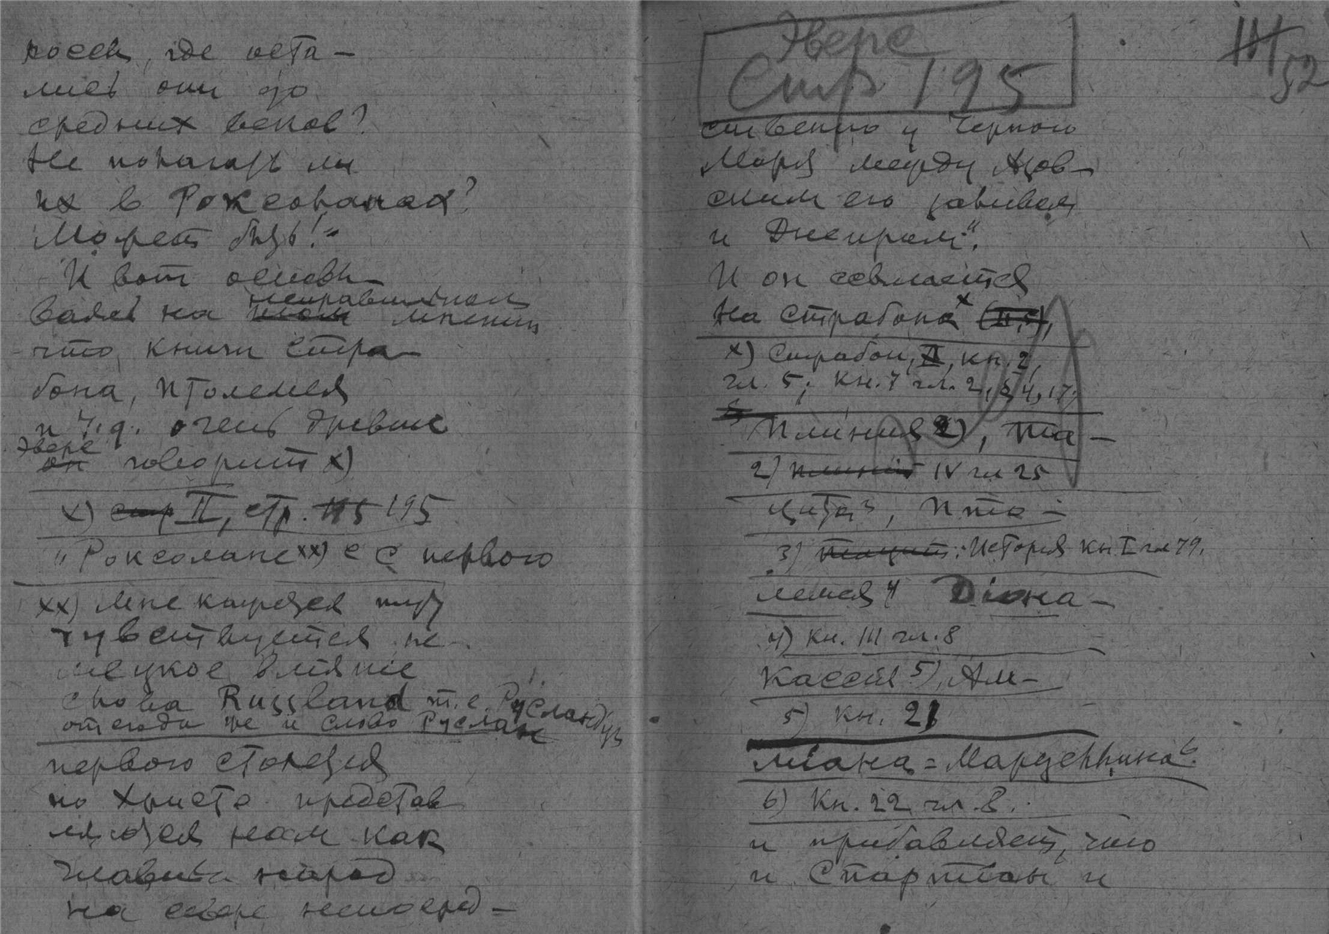 россы, где оста-
лись они до
средних веков?
Не полагать ли
их в Роксоланах?
Может быть!"
И вот основы-
ваясь на неправильном мнении
что книги Стра-
бона, Птолемея
и т.д. очень древние
Эверс говорит x)
x) II, стр. 195
"Роксолане xx) с первого
xx) Мне кажется тут
чувствуется не-
мецкое влияние
слова Russland т.е. Русланд
отсюда же и слово Руслан
первого столетия
по Христе представ
ляются нам как
главный народ
на севере непосред-
Эверс
Стр 195
III/52
ственно у Черного
Моря между Азов-
ским его заливом
и Днепром".
И он ссылается
на Страбона x
x) Страбон, II, кн. 2,
гл. 5; кн. 7 гл. 2, 3, 4, 17,
Плиния 2), Та-
2) IV гл 25
цита 3, Пто-
3) История кн. I гл 79.
лемея 4 Диона-
4) кн. III гл. 8
Кассия 5), Ам-
5) кн. 21
миана-Марцеллина 6.
6) Кн. 22 гл. 8.
и прибавляет, что
и Спартиан и